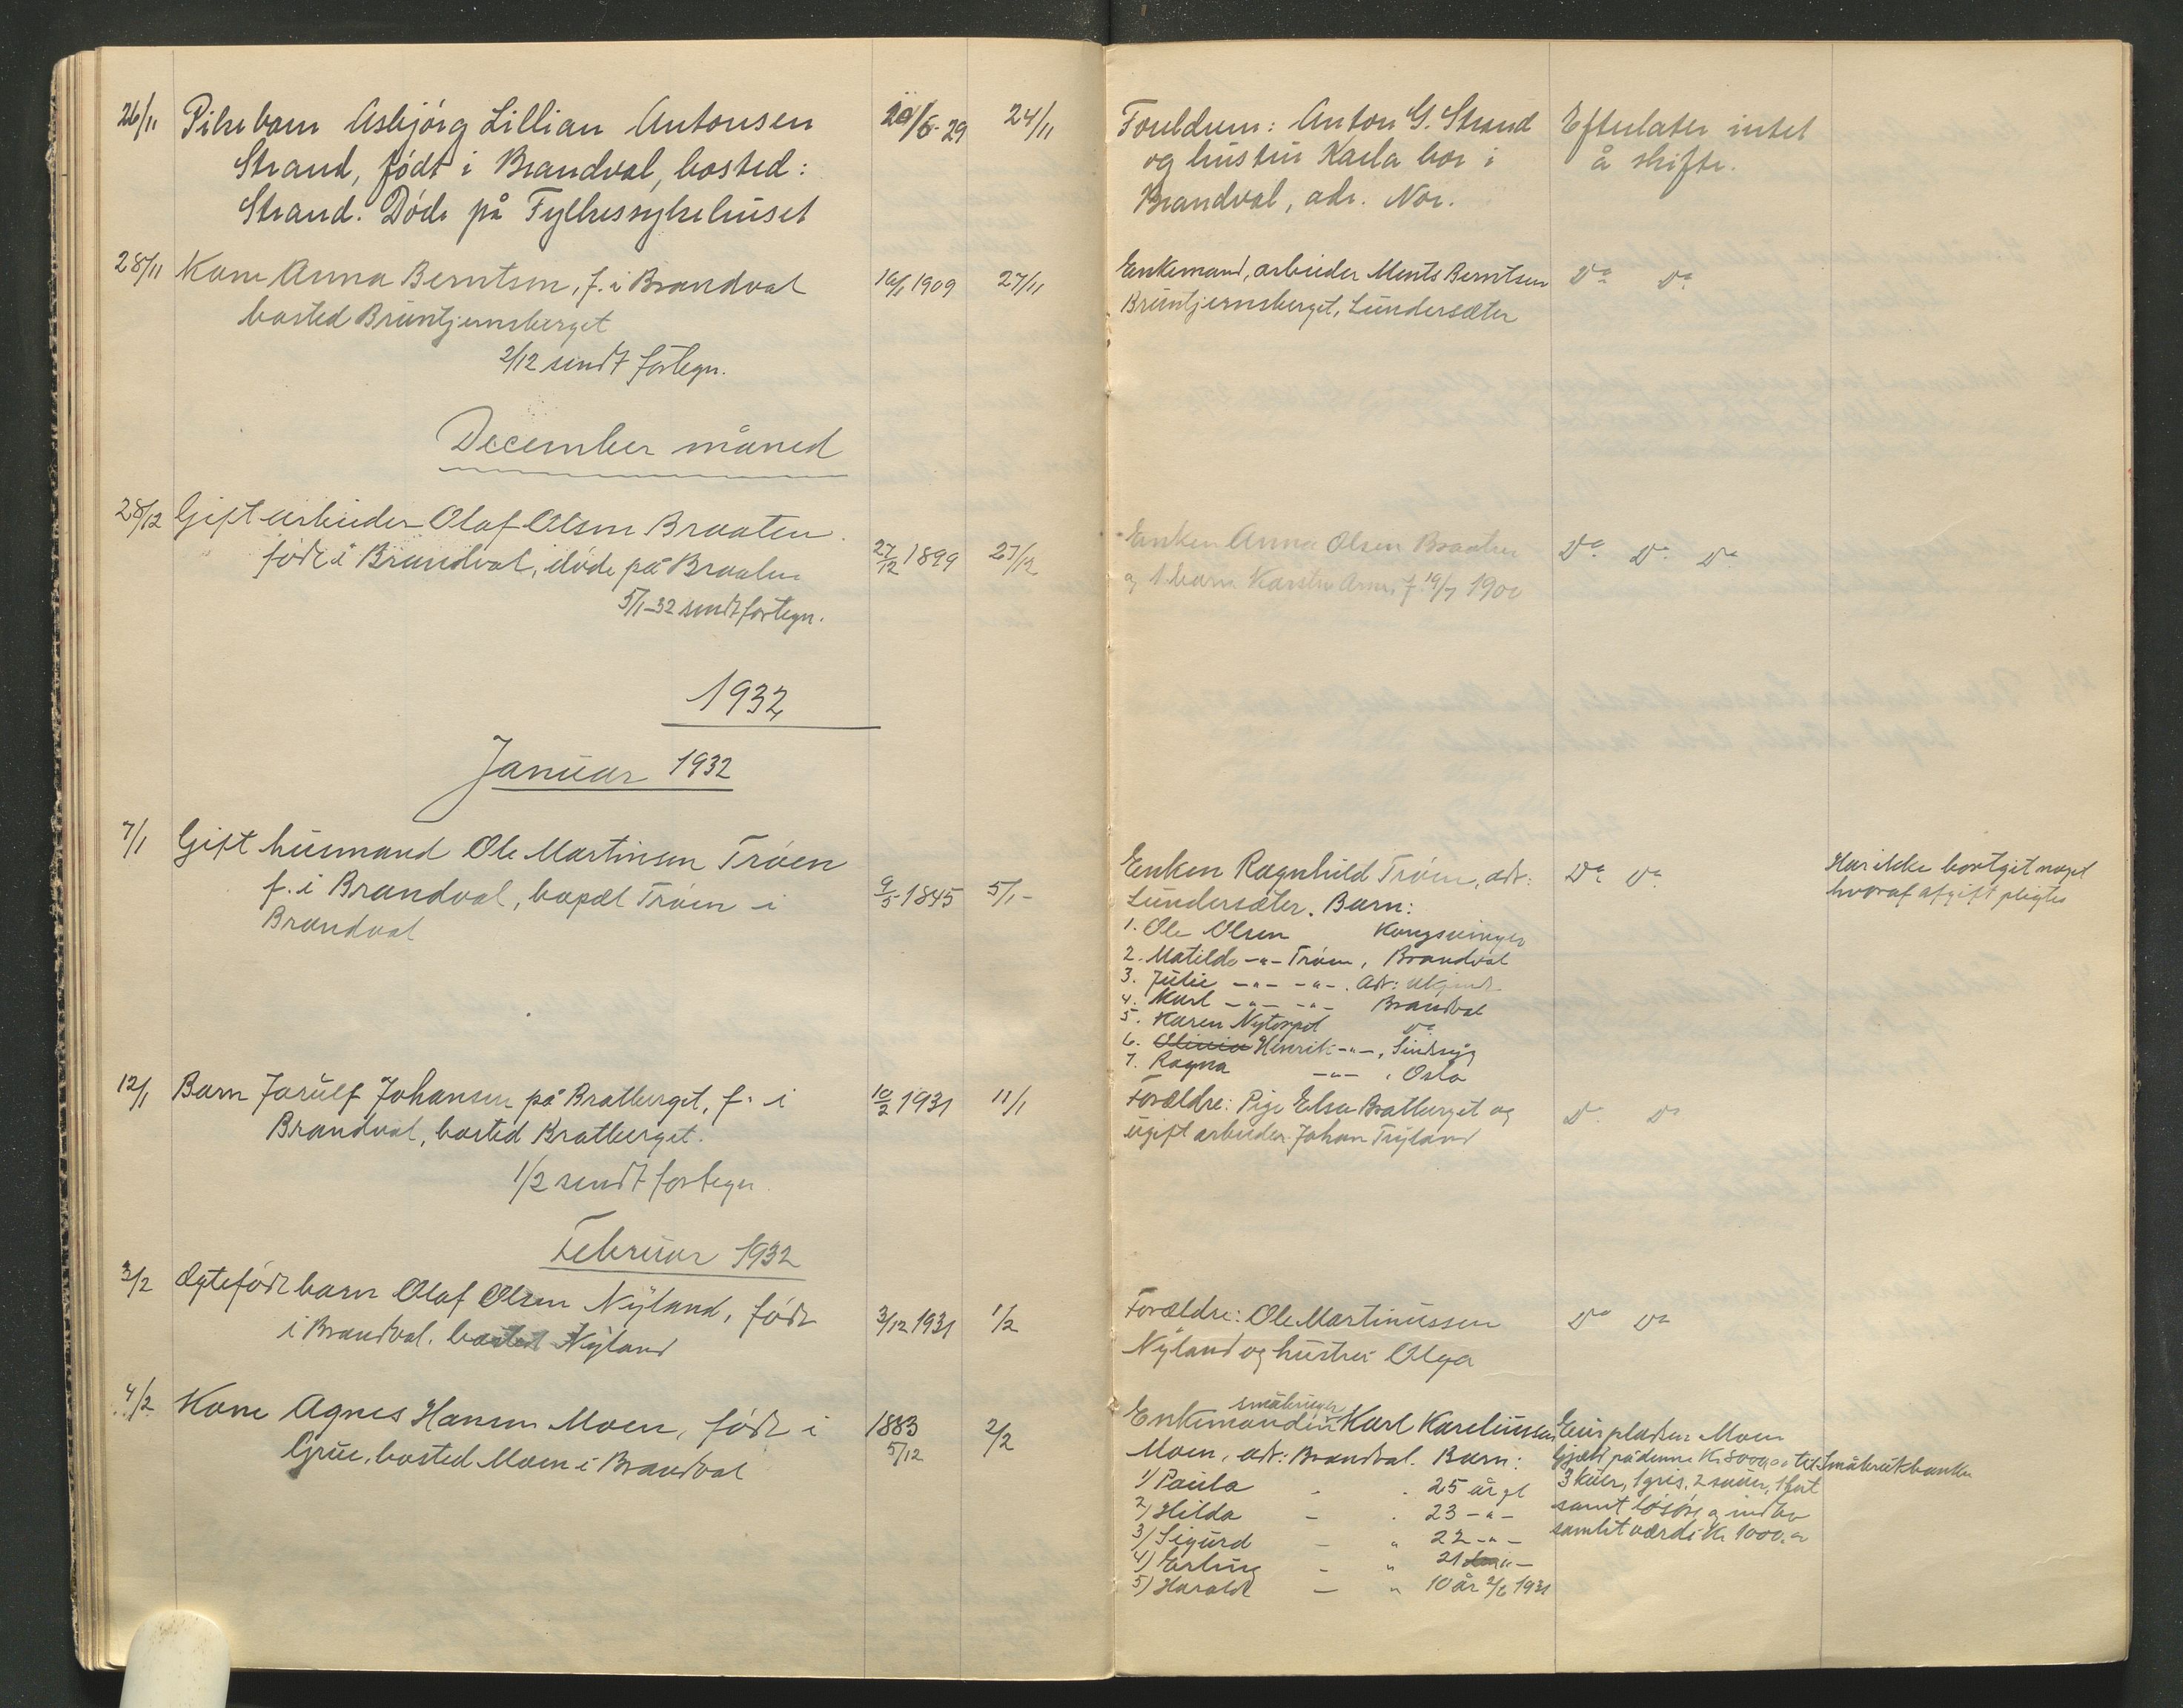 26/11 Pikebarn Asbjörg Lillian Antonsen 20/6-29 24/11
Strand, födt i Brandval, bosted:
Strand. Döde på Fylkessykehuset
28/11 Kone Anna Berntsen, f. i Brandval 16/1 1909 27/11
bosted Bruntjernsberget
2/12 sendt fortegn.
December måned
28/12 Gift arbeider Olaf Olsen Braaten
födt i Brandval, döde på Braaten 27/12 1899 27/12
5/1-32 sendt fortegn.
1932
Januar 1932
7/1 Gift husmand Ole Martinsen Tröen
f. i Brandval, bopæl Tröen i 9/5 1845 5/1-
Brandval
12/1 Barn Jarulf Johansen på Bratberget, f. i 10/2 1931 11/1
Brandval, bosted Bratberget.
1/2 sendt fortegn.
Februar 1932
3/2 Ægtefödt barn Olaf Olsen Nyland, födt
i Brandval. bosted Nyland 3/12 1931 1/2
4/2 Kone Agnes Hansen Moen, födt i 1883 2/2
Grue, bosted Moen i Brandval 5/12
Foreldrene: Anton G. Strand Efterlater intet
og hustru Karla bor i å skifte.
Brandval, adr. Nor.
Enkemand, arbeider Ments Berntsen Do Do
Bruntjernsberget, Lundersæter
Enken Anna Olsen Braaten Do Do Do
og 1 barn Karsten Arne, f. 19/7 1900
Enken Ragnhild Tröen, adr: Do Do Har ikke bortgit noget
Lundersæter. Barn: hvoraf afgift pligtes
1. Ole Olsen Kongsvinger
2. Matilde -"- Tröen, Brandval
3. Julie -"- -"-. Adr: ukjendt
4. Karl -"- -"- Brandval
5. Karen Nytorpet Do
6. Henrik -"-, Sindsyg
7. Ragna -"- , Oslo
Forældre: Pige Elsa Bratberget og Do Do
ugift arbeider Johan Tryland
Forældre: Ole Martinussen Do Do
Nyland og hustru Olga
småbruger
Enkemanden Karl Kareliussen Eier pladsen Moen
Moen, adr: Brandval. Barn: Gjæld på denne Kr 8000,00 til Småbrukbanken
1) Paula - . 25 år gl 3 kuer, 1 gris, 2 sauer, 1 hest
2) Hilda - . 23 -"- samt lösöre og indbo
3) Sigurd - " 22 -"- samlet værdi Kr 1000.00
4) Erling - " 21 -"-
5) Harald - " 10 år 2/6 1931